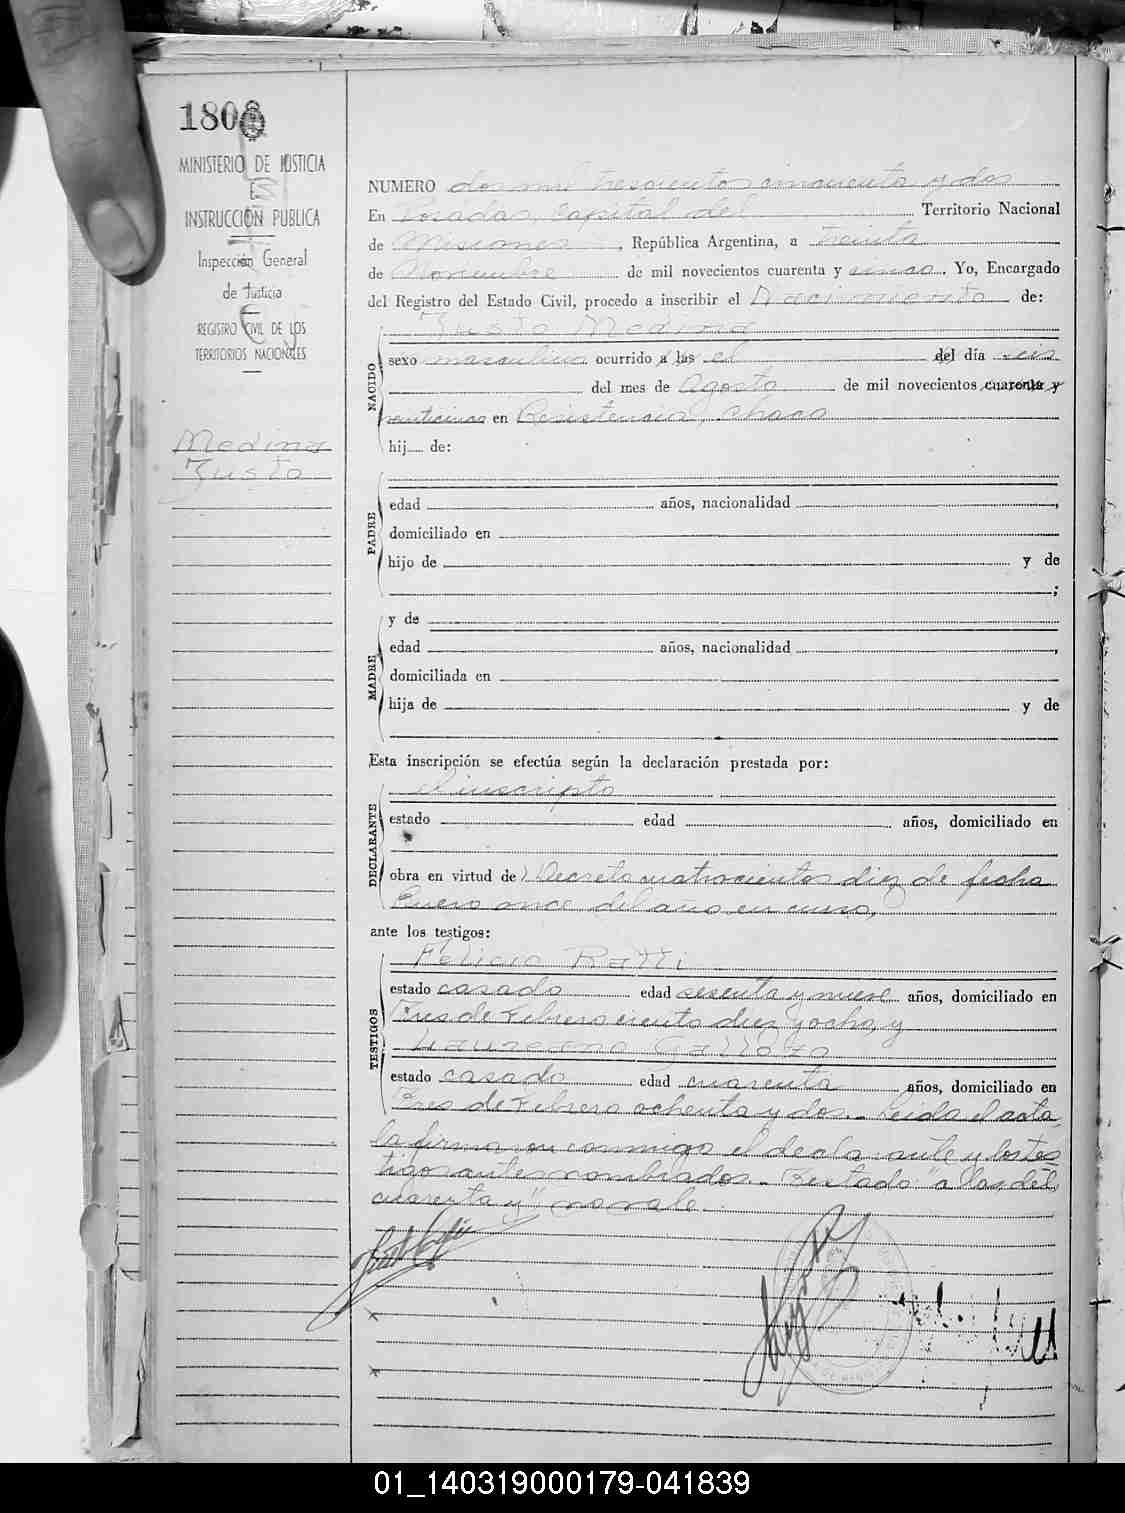 180
MINISTERIO DE JUSTICIA
E
INSTRUCCIÓN PUBLICA
Inspección General
de Justicia
REGISTRO CIVIL DE LOS
TERRITORIOS NACIONALES
Medina
Justo
NUMERO dos mil trescientos cincuenta y dos
En Posadas, Capital del Territorio Nacional
de Misiones, República Argentina, a treinta
de Noviembre de mil novecientos cuarenta y cinco. Yo, Encargado
del Registro del Estado Civil, procedo a inscribir el Nacimiento de:
NACIDO
Justo Medina
sexo masculino ocurrido a las el del día seis
del mes de Agosto de mil novecientos cuarenta y
veinticinco en Resistencia, Chaco
hij de:
PADRE
edad años, nacionalidad ,
domiciliado en
hijo de y de
;
MADRE
y de
edad años, nacionalidad ,
domiciliada en
hija de y de
Esta inscripción se efectúa según la declaración prestada por:
DECLARANTE
el inscripto
estado edad años, domiciliado en
obra en virtud de Decreto cuatrocientos diez de fecha
Enero once del año en curso,
ante los testigos:
TESTIGOS
Felicio Ratti
estado casado edad sesenta y nueve años, domiciliado en
Tres de Febrero ciento diez y ocho, y
Laureano
estado casado edad cuarenta años, domiciliado en
Tres de Febrero ochenta y dos.- Leida el acta,
la firmaron conmigo el declarante y los tes
tigos antes nombrados.- Testado: "a las, del,
cuarenta y" no vale
01_140319000179-041839